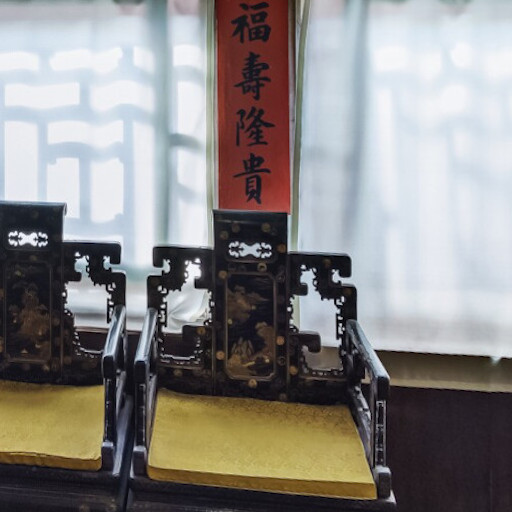 福壽隆貴